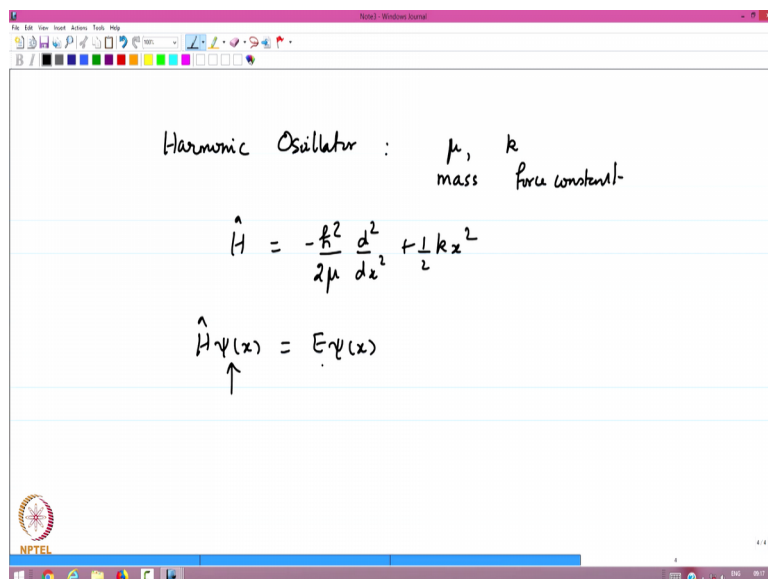 Note3 - Windows Journal
File Edit View Insert Actions Tools Help
Harmonic Oscillator : μ, k
mass force constant
Ĥ = -ℏ²/2μ d²/dx² + 1/2 kx²
Ĥψ(x) = Eψ(x)
↑
NPTEL
4/4
4
ENG 09:17